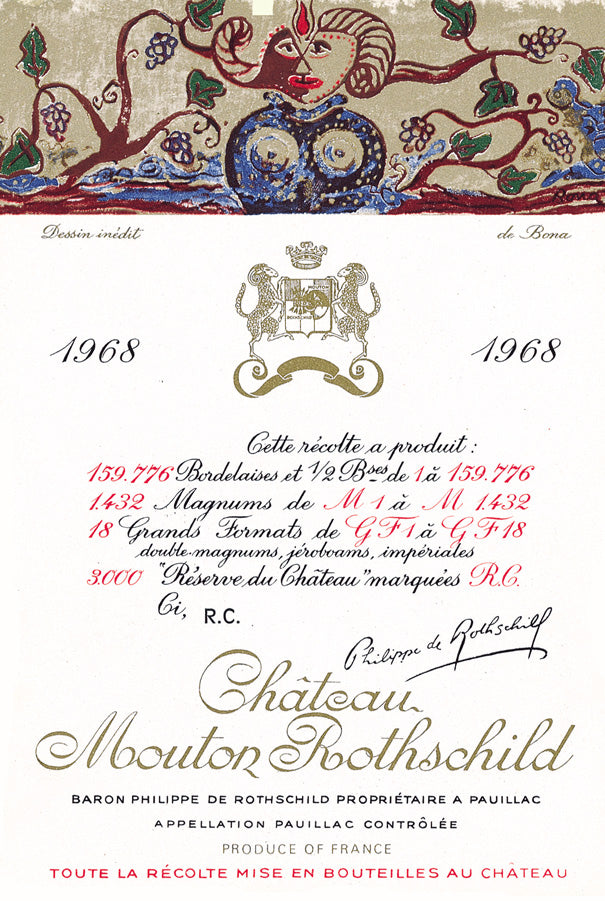 Bona
Dessin inédit
de Bona
MOUTON
ROTHSCHILD
1968
1968
Cette récolte a produit :
159.776 Bordelaises et 1/2 Bses de 1 à 159.776
1.432 Magnums de M 1 à M 1.432
18 Grands Formats de G F 1 à G F 18
double-magnums, jéroboams, impériales
3.000 "Réserve du Château" marquées R.C.
Ci, R.C.
Philippe de Rothschild
Château
Mouton Rothschild
BARON PHILIPPE DE ROTHSCHILD PROPRIÉTAIRE A PAUILLAC
APPELLATION PAUILLAC CONTRÔLÉE
PRODUCE OF FRANCE
TOUTE LA RÉCOLTE MISE EN BOUTEILLES AU CHÂTEAU